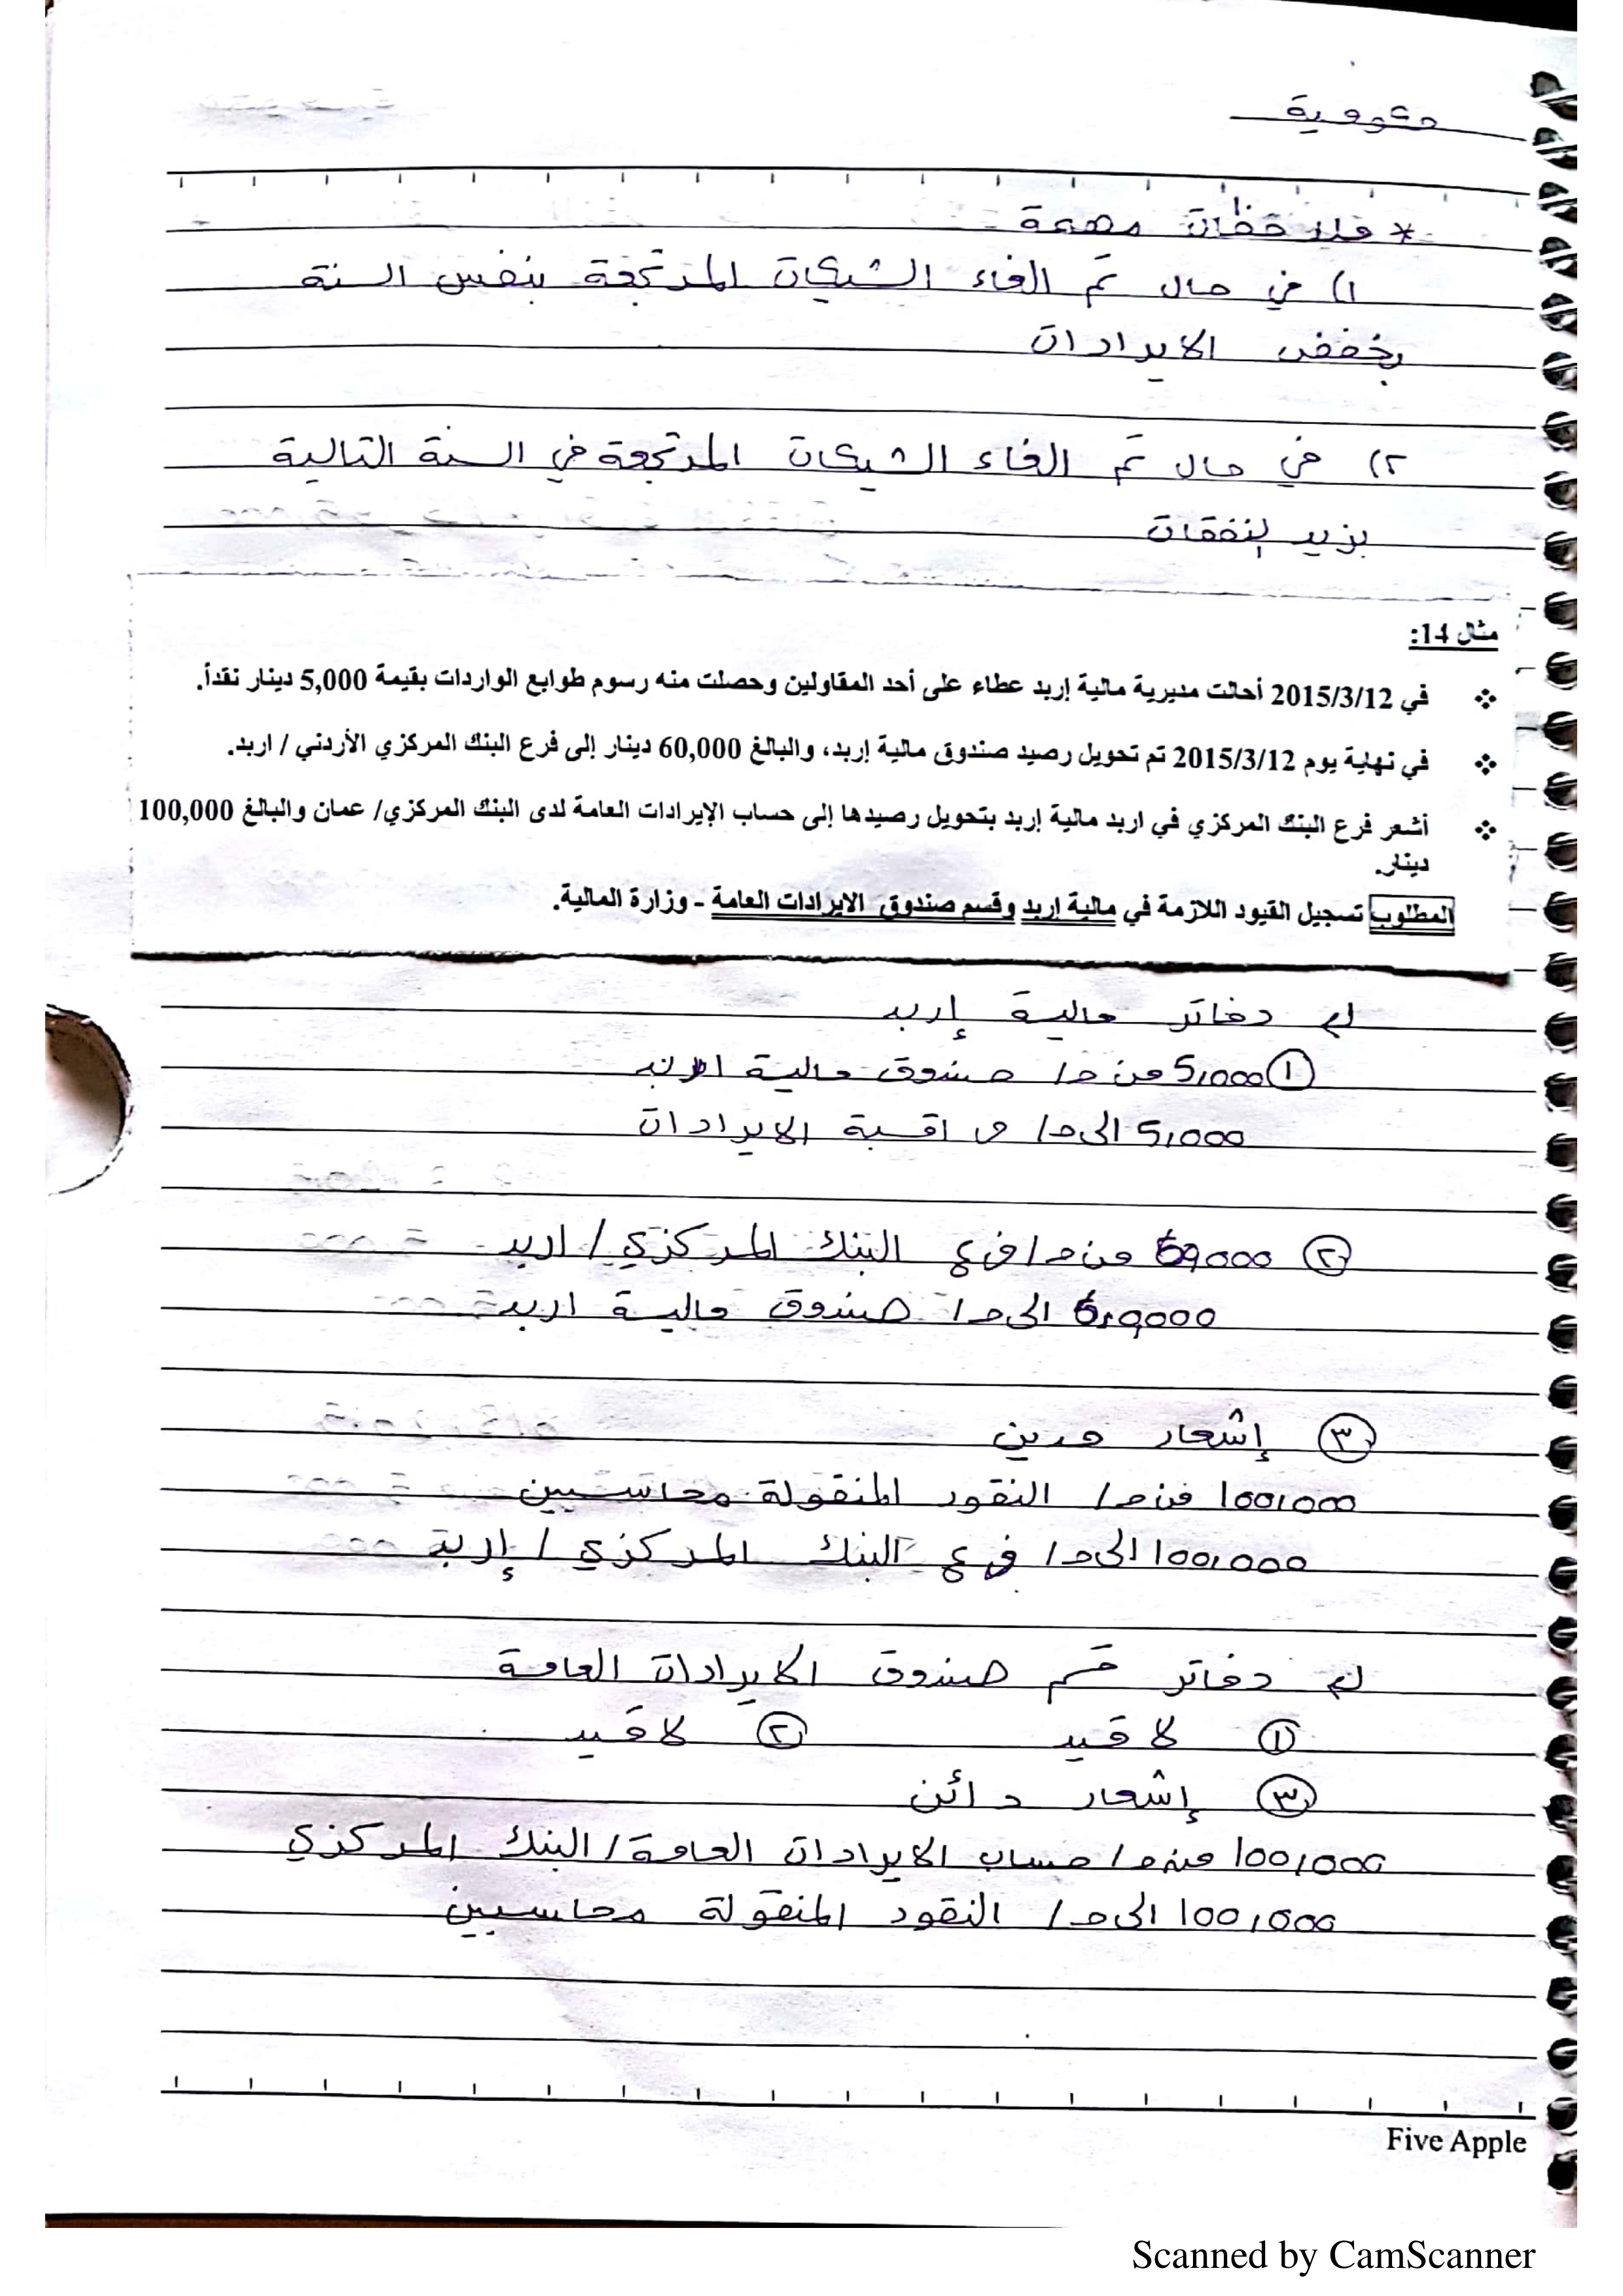 حكومية
* ملاحظات مهمة
١) في حال تم الغاء الشيكات المرتجعة بنفس السنة
يخفض الايرادات
٢) في حال تم الغاء الشيكات المرتجعة في السنة التالية
يزيد النفقات
مثال 14:
❖ في 2015/3/12 أحالت مديرية مالية إربد عطاء على أحد المقاولين وحصلت منه رسوم طوابع الواردات بقيمة 5,000 دينار نقداً.
❖ في نهاية يوم 2015/3/12 تم تحويل رصيد صندوق مالية إربد، والبالغ 60,000 دينار إلى فرع البنك المركزي الأردني / اربد.
❖ أشعر فرع البنك المركزي في اربد مالية إربد بتحويل رصيدها إلى حساب الإيرادات العامة لدى البنك المركزي/ عمان والبالغ 100,000
دينار.
المطلوب تسجيل القيود اللازمة في مالية إربد وقسم صندوق الايرادات العامة - وزارة المالية.
دفاتر مالية إربد
① 5,000 من ح/ صندوق مالية اربد
5,000 الى ح/ مراقبة الايرادات
② 60,000 من ح/ فرع البنك المركزي / اربد
60,000 الى ح/ صندوق مالية اربد
③ إشعار مدين
100,000 من ح/ النقود المنقولة محاسبين
100,000 الى ح/ فرع البنك المركزي / إربد
دفاتر قسم صندوق الايرادات العامة
① لا قيد ② لا قيد
③ إشعار دائن
100,000 من ح/ حساب الايرادات العامة / البنك المركزي
100,000 الى ح/ النقود المنقولة محاسبين
Five Apple
Scanned by CamScanner